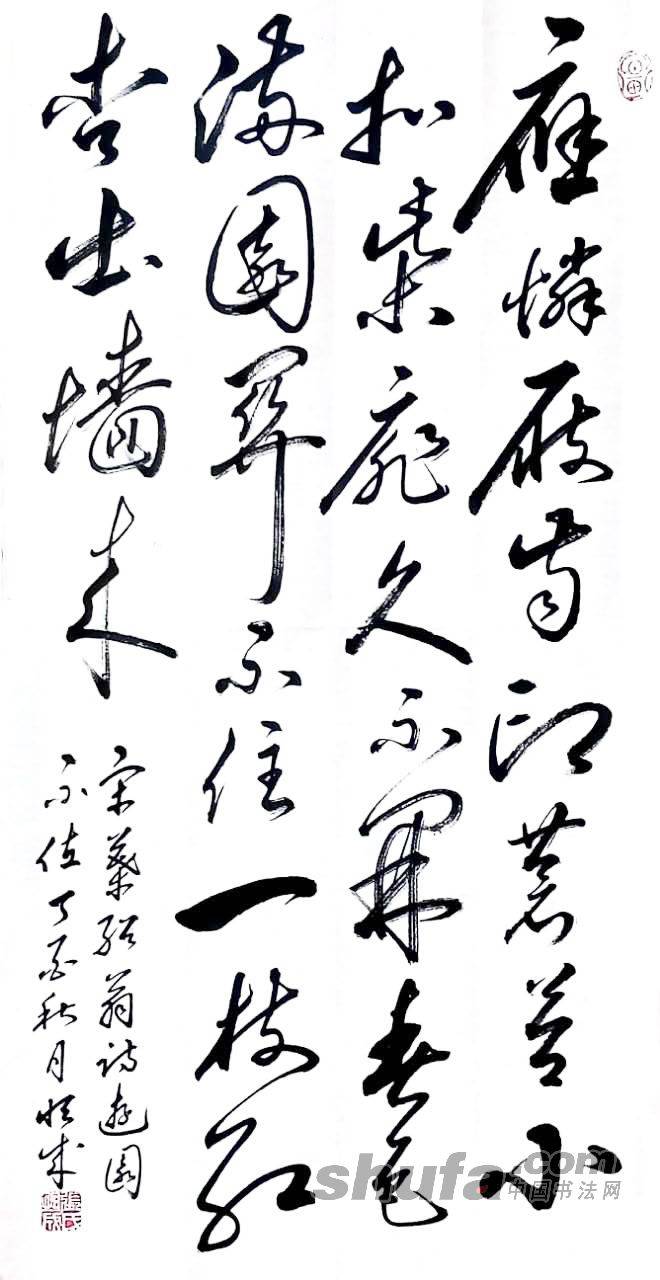 應憐屐齒印蒼苔小
扣柴扉久不開春色
滿園關不住一枝紅
杏出墻來
宋葉紹翁詩遊園
不值丁酉秋月成
shufa.com
中国书法网